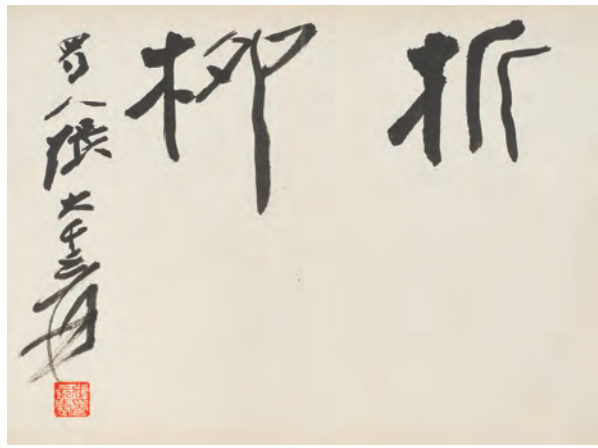 折柳
蜀人張大千爰